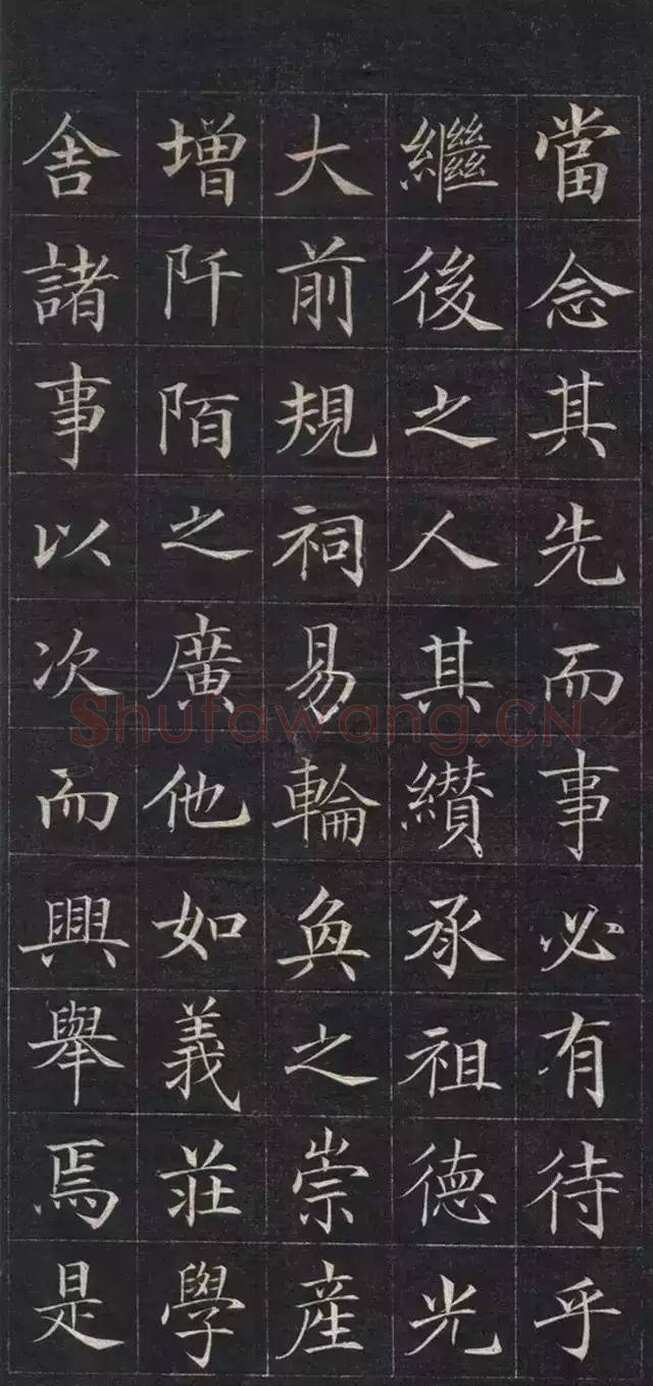 當念其先而事必有待乎
繼後之人其纘承祖德光
大前規祠易輪奐之崇産
增阡陌之廣他如義莊學
舍諸事以次而興舉焉是
Shufawang.CN